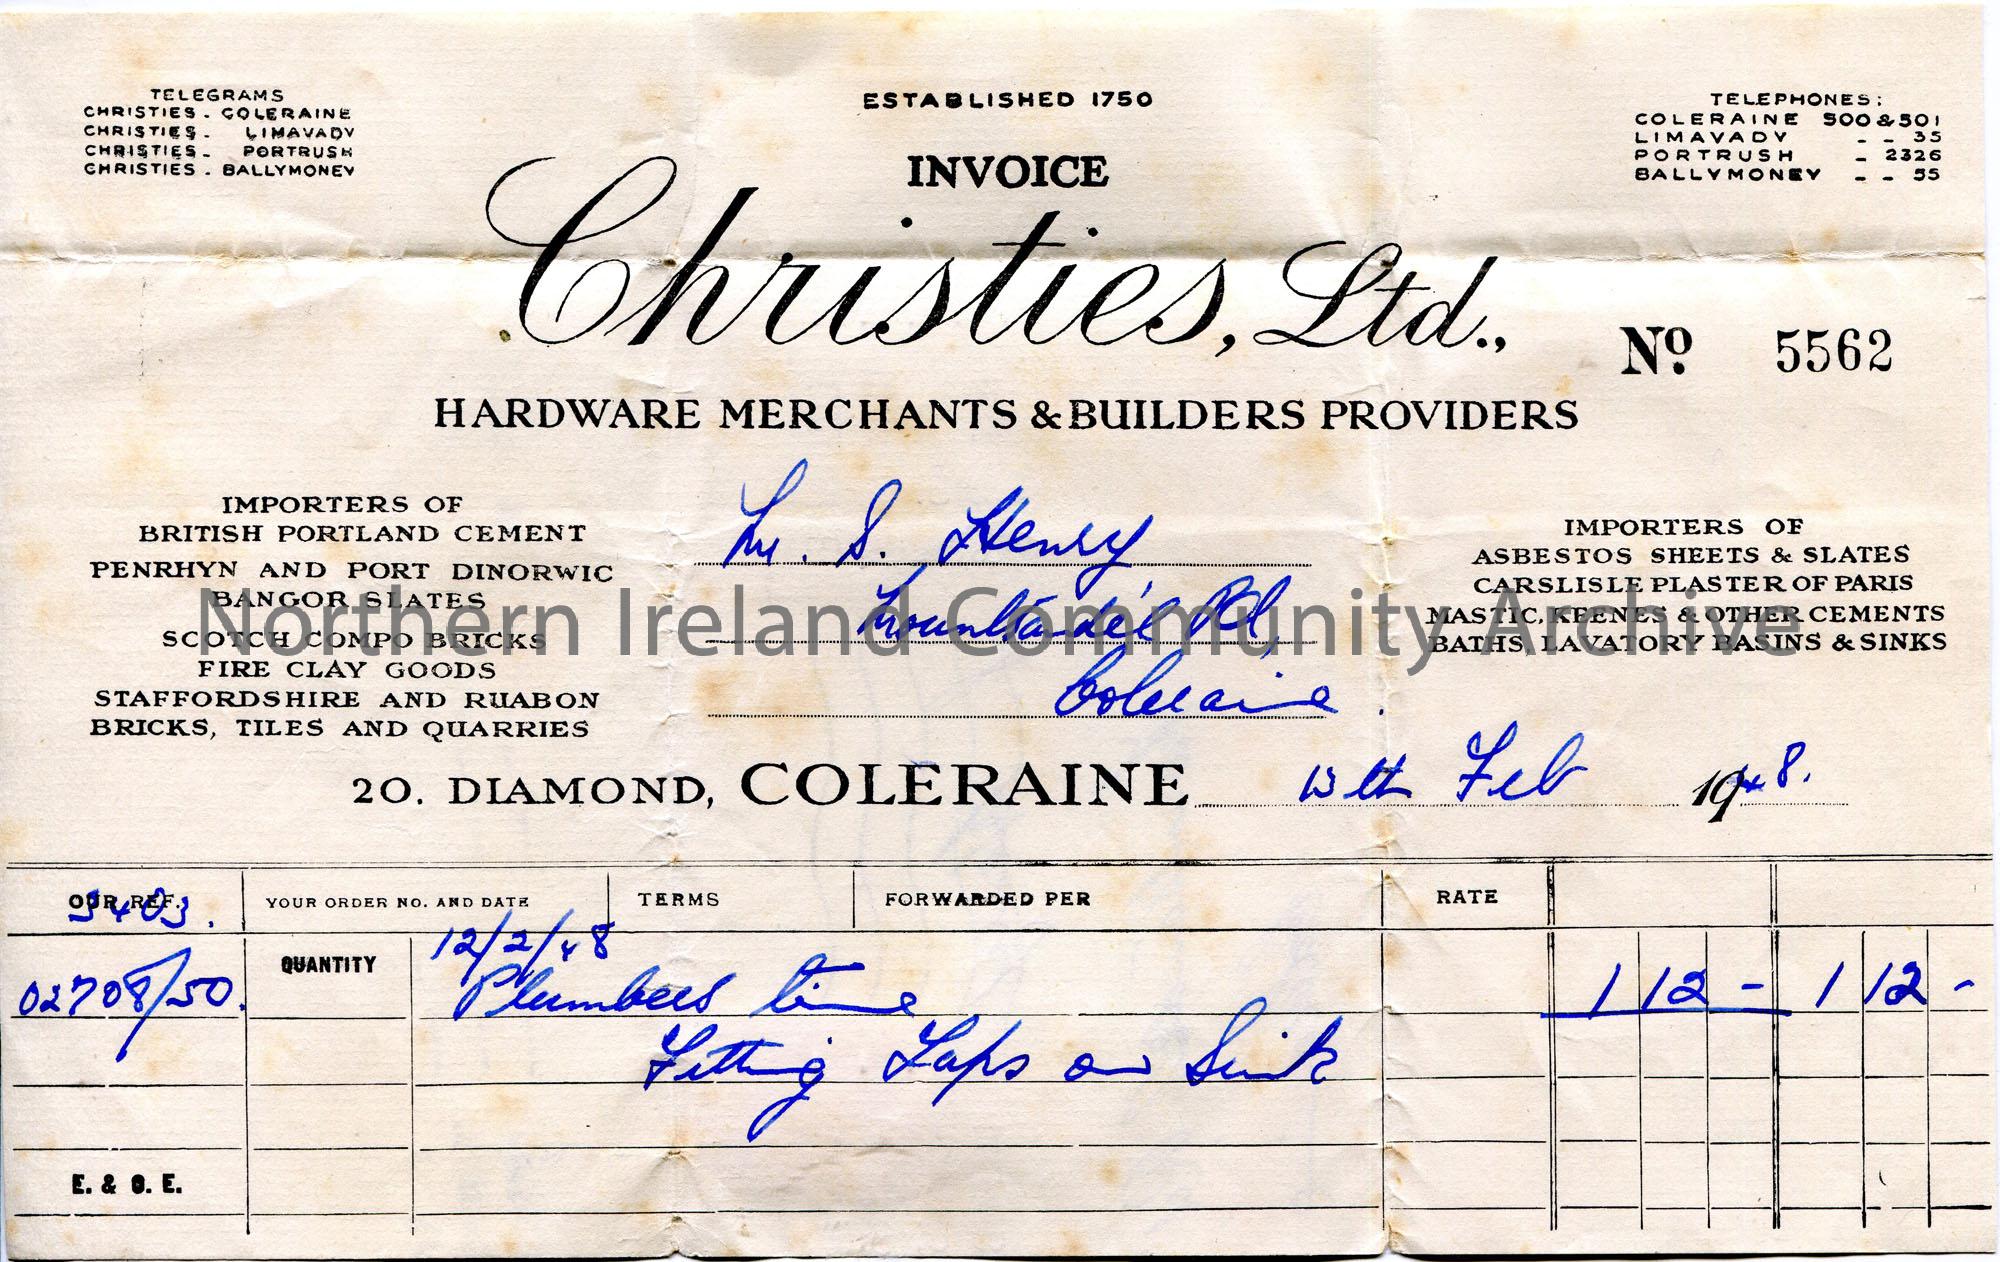 TELEGRAMS
CHRISTIES. COLERAINE
CHRISTIES. LIMAVADY
CHRISTIES. PORTRUSH
CHRISTIES. BALLYMONEY
ESTABLISHED 1750
INVOICE
TELEPHONES:
COLERAINE 500 & 501
LIMAVADY - - 35
PORTRUSH - 2326
BALLYMONEY - - 55
Christies, Ltd.,
No 5562
HARDWARE MERCHANTS & BUILDERS PROVIDERS
IMPORTERS OF
BRITISH PORTLAND CEMENT
PENRHYN AND PORT DINORWIC
BANGOR SLATES
SCOTCH COMPO BRICKS
FIRE CLAY GOODS
STAFFORDSHIRE AND RUABON
BRICKS, TILES AND QUARRIES
Mr. S. Henry
Mountsandel Rd,
Coleraine.
IMPORTERS OF
ASBESTOS SHEETS & SLATES
CARSLISLE PLASTER OF PARIS
MASTIC, KEENES & OTHER CEMENTS
BATHS, LAVATORY BASINS & SINKS
Northern Ireland Community Archive
20. DIAMOND, COLERAINE 13th Feb 1948.
OUR REF. YOUR ORDER NO. AND DATE TERMS FORWARDED PER RATE
3403.
QUANTITY 12/2/48
02708/50. Plumbers time 1 12 - 1 12 -
Fitting Taps on Sink
E. & O. E.